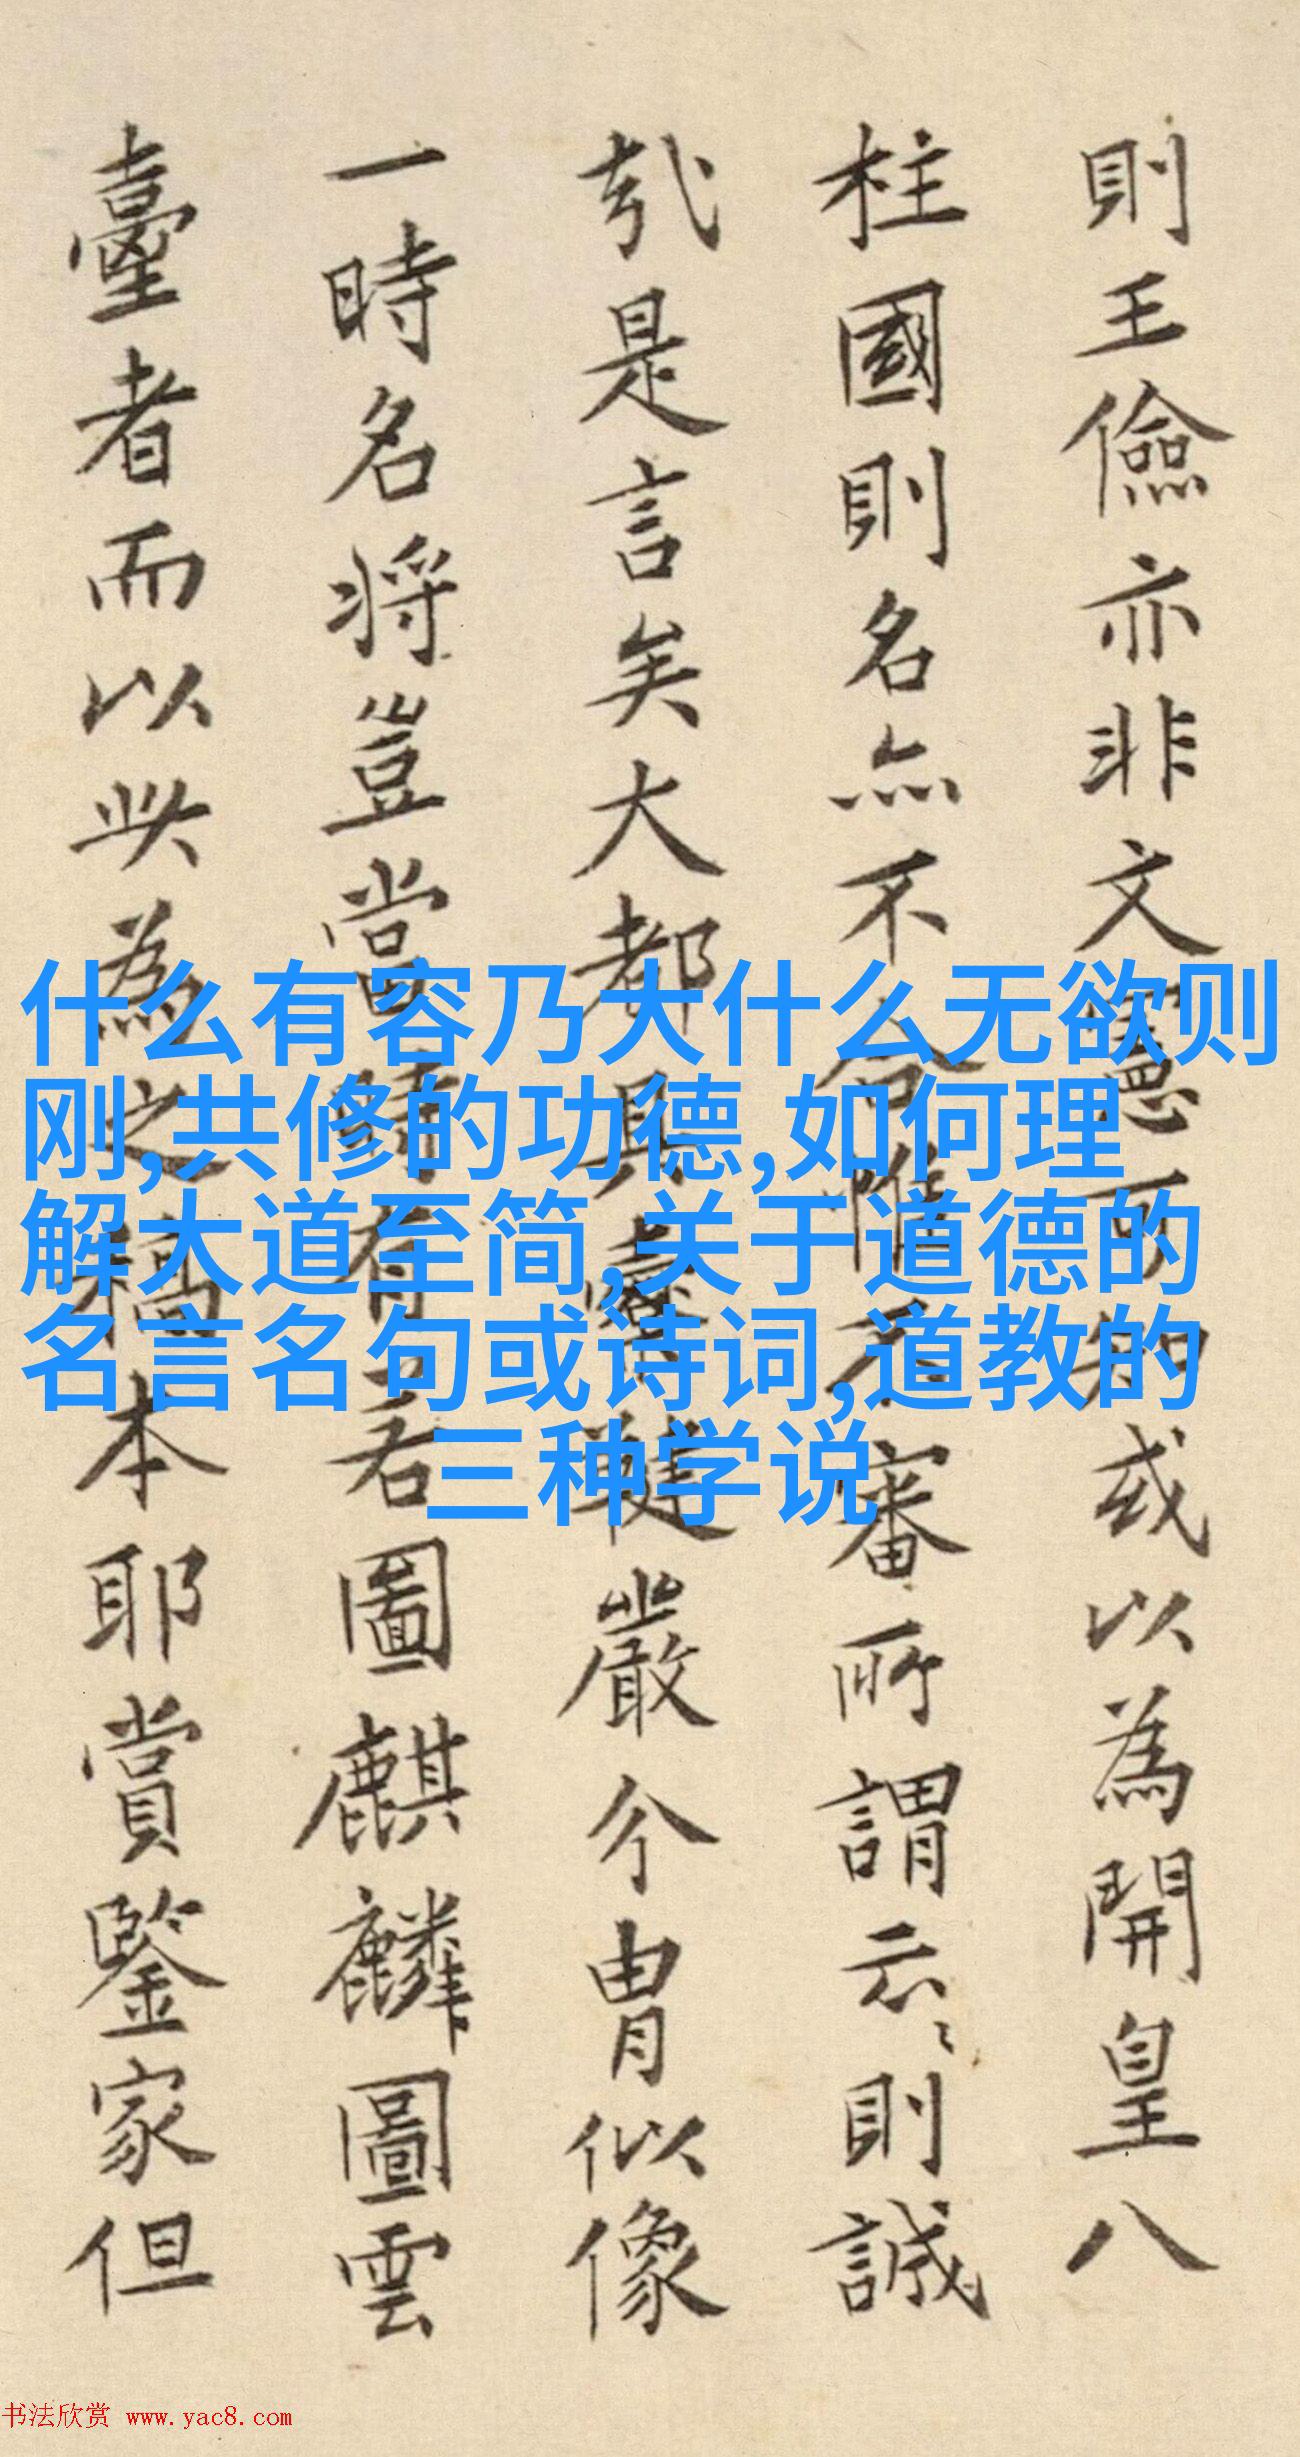 則王儉亦非文憲可知或以為開皇八
柱國則名亦不合惟不審所謂云〻則誠
哉是言矣大都具嚴介冑似像
一時名將豈當時有若圖麒麟圖雲
臺者而以此為之稿本耶賞鑒家但
什么有容乃大什么无欲则
刚,共修的功德,如何理
解大道至简,关于道德的
名言名句或诗词,道教的
三种学说
书法欣赏 www.yac8.com